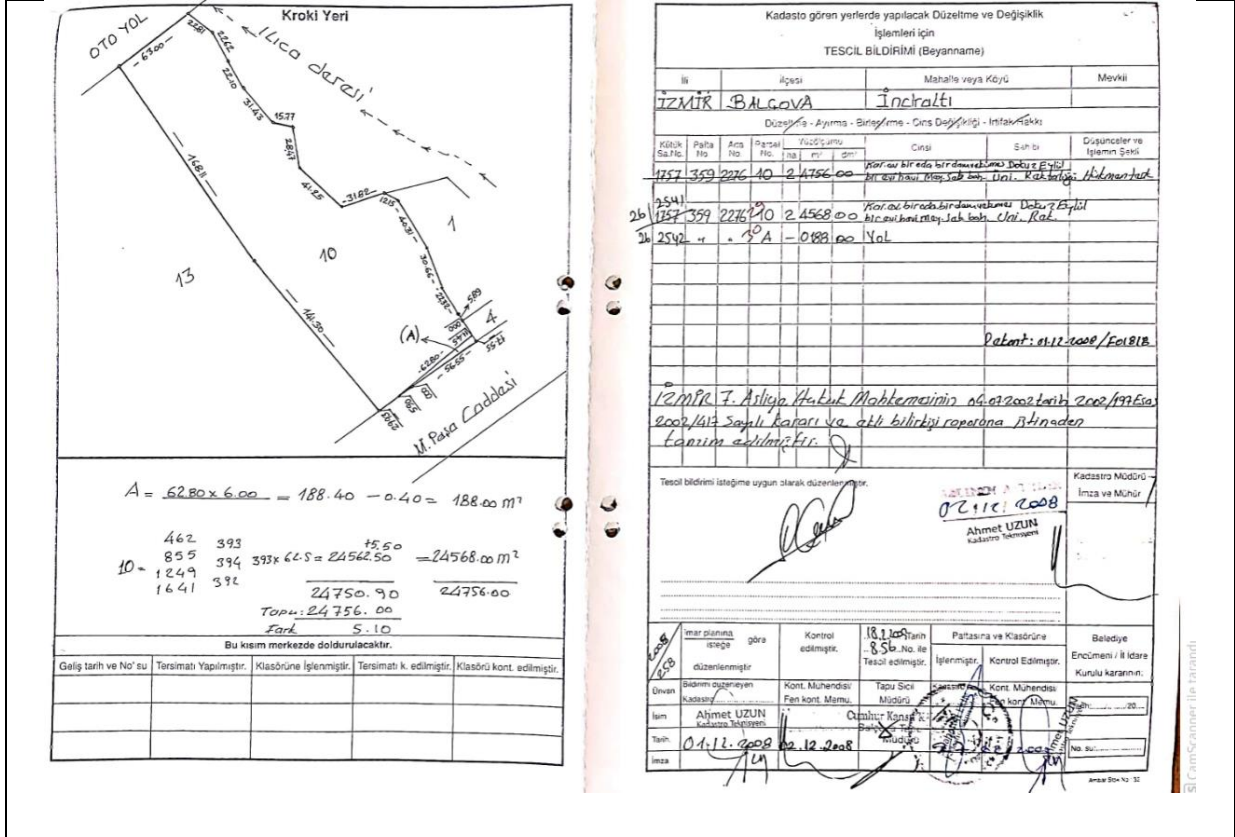 Kroki Yeri
OTO YOL
Ilıca deresi
-63.00-
22.81
22.62
22.10
31.43
15.77
28.47
41.25
-31.82
12.15
-40.31-
30.66-
-22.32-
5.89
168.11
141.30
1
10
13
4
(A)
000
11.45
-62.80-
-56.55
17.55
000
590
29.93
M. Paşa Caddesi
A = 62.80 x 6.00 = 188.40 - 0.40 = 188.00 m²
10 =
462
855
1249
1641
393
394
392
393 x 62.5 = 24562.50
+5.50
= 24568.00 m²
24750.90
24756.00
Tapu: 24756.00
Fark 5.10
Bu kısım merkezde doldurulacaktır.
Geliş tarih ve No' su
Tersimatı Yapılmıştır.
Klasörüne İşlenmiştir.
Tersimatı k. edilmiştir.
Klasörü kont. edilmiştir.
Kadasto gören yerlerde yapılacak Düzeltme ve Değişiklik
İşlemleri için
TESCİL BİLDİRİMİ (Beyanname)
İli İlçesi Mahalle veya Köyü Mevkii
İZMİR BALÇOVA İnciraltı
Düzeltme - Ayırma - Birleştirme - Cins Değişikliği - İrtifak Hakkı
Kütük Sa.No. Pafta No. Ada No. Parsel No. Yüzölçümü ha m² dm² Cinsi Sahibi Düşünceler ve İşlemin Şekli
1757 359 2276 10 2 4756 00 Kar.ev bir oda bir dam Dokuz Eylül
bir evi havi Uni. Rektörlüğü Hükmen
2541
26 1757 359 2276 10 2 4568 00 Kar.ev bir oda bir dam Dokuz Eylül
29
bir evi havi Uni. Rek.
26 2542 " " 30 A - 0188 00 YOL
Dekont: 01-12-2008/E01818
İZMİR 7. Asliye Hukuk Mahkemesinin 04-07-2002 tarih 2002/197 Esas
2002/417 Sayılı kararı ve ekli bilirkişi raporuna istinaden
tanzim edilmiştir.
Tescil bildirimi isteğime uygun olarak düzenlenmiştir.
Kadastro Müdürü
İmza ve Mühür
02.12.2008
Ahmet UZUN
Kadastro Teknisyeni
2008/258
İmar planına
isteğe göre
düzenlenmiştir
Kontrol
edilmiştir.
18.2.2009 Tarih
856 No. ile
Tescil edilmiştir.
Paftasına ve Klasörüne
İşlenmiştir. Kontrol Edilmiştir.
Belediye
Encümeni / İl İdare
Kurulu kararının;
Ünvan
Bildirimi düzenleyen
Kadastro
Kont. Mühendisi/
Fen kont. Memu.
Tapu Sicil
Müdürü
Kont. Mühendisi
Fen kont. Memu.
İsim
Ahmet UZUN
Kadastro Teknisyeni
Müdürü
Tarih
01.12.2008
02.12.2008
20....
No. su:
İmza
CamScanner ile tarandı